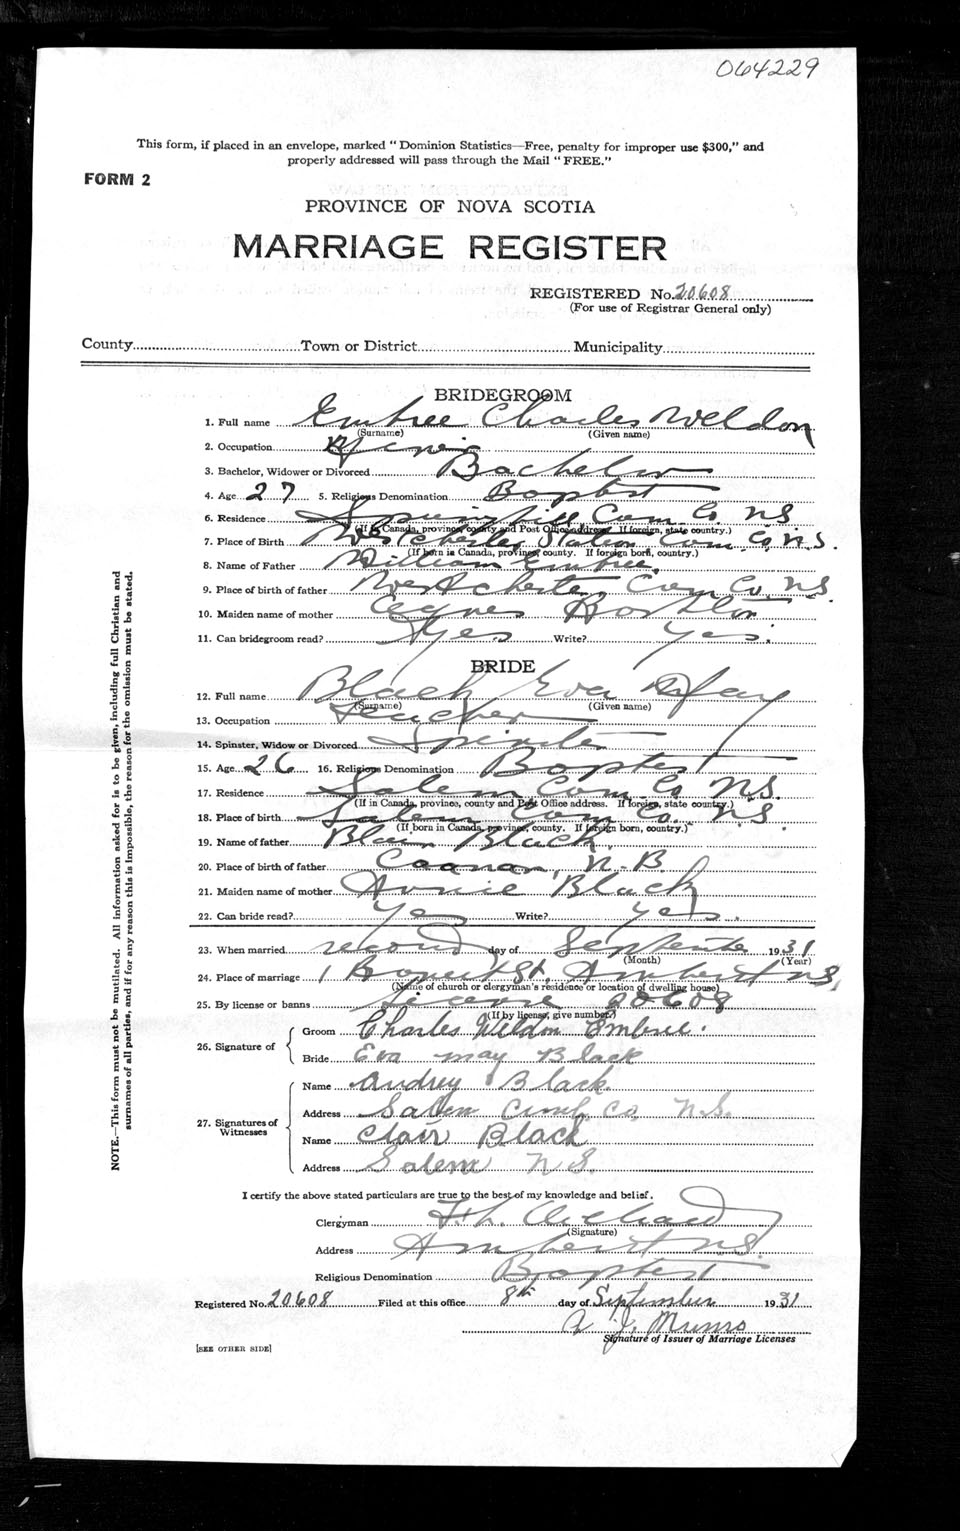 064229
This form, if placed in an envelope, marked "Dominion Statistics—Free, penalty for improper use $300," and
properly addressed will pass through the Mail "FREE."
FORM 2
PROVINCE OF NOVA SCOTIA
MARRIAGE REGISTER
REGISTERED No. 20608
(For use of Registrar General only)
County Town or District Municipality
BRIDEGROOM
1. Full name Embree Charles Weldon
(Surname) (Given name)
2. Occupation
3. Bachelor, Widower or Divorced Bachelor
4. Age 27 5. Religious Denomination Baptist
6. Residence Springhill Cum. Co. NS
(If in Canada, province, county and Post Office address. If foreign, state country.)
7. Place of Birth Westchester Station Cum. Co. N.S.
(If born in Canada, province, county. If foreign born, country.)
8. Name of Father William Embree
9. Place of birth of father Westchester Cum Co. N.S.
10. Maiden name of mother Agnes
11. Can bridegroom read? Yes Write? Yes.
BRIDE
12. Full name Black Eva May
(Surname) (Given name)
13. Occupation Teacher
14. Spinster, Widow or Divorced Spinster
15. Age 26 16. Religious Denomination Baptist
17. Residence Salem Cum Co N.S.
(If in Canada, province, county and Post Office address. If foreign, state country.)
18. Place of birth Salem Cum Co. N.S.
(If born in Canada, province, county. If foreign born, country.)
19. Name of father Black.
20. Place of birth of father N.B.
21. Maiden name of mother Annie Black
22. Can bride read? Yes Write? Yes.
23. When married second day of September 1931
(Month) (Year)
24. Place of marriage St. Amherst N.S.
(Name of church or clergyman's residence or location of dwelling house)
25. By license or banns License 20608
(If by license, give number.)
26. Signature of
Groom Charles Weldon Embree.
Bride Eva May Black
27. Signatures of Witnesses
Name Audrey Black.
Address Salem Cumb. Co. N.S.
Name Clair Black
Address Salem N.S.
I certify the above stated particulars are true to the best of my knowledge and belief.
Clergyman
(Signature)
Address Amherst N.S.
Religious Denomination Baptist
Registered No. 20608 Filed at this office 8th day of September 1931
A. J. Munro
Signature of Issuer of Marriage Licenses
[SEE OTHER SIDE]
NOTE.—This form must not be mutilated. All information asked for is to be given, including full Christian and
surnames of all parties, and if for any reason this is impossible, the reason for the omission must be stated.